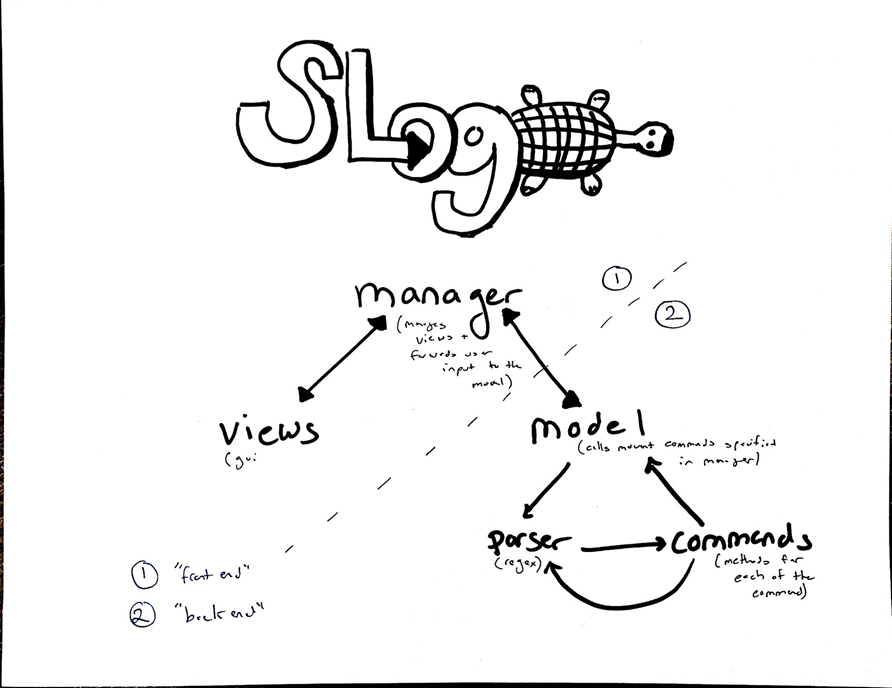 SLogo
1
2
manager
(manages
views +
forwards user
input to the
model)
views
(gui
model
(calls movement commands specified
in manager)
parser
(regex)
commands
(methods for
each of the
command)
1 "front end"
2 "back end"